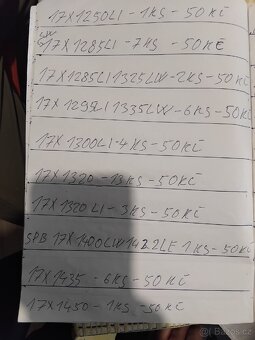 17X1250LI - 1KS - 50KČ
17X1285LI - 7KS - 50KČ
17X1285LI 1325LW - 2KS - 50KČ
17X1295LI 1335LW - 6KS - 50KČ
17X1300LI - 4KS - 50KČ
17X1320 - 13KS - 50KČ
17X1320LI - 3KS - 50KČ
SPB 17X1400LW 1422LE 1KS - 50KČ
17X1435 - 6KS - 50KČ
17X1450 - 1KS - 50KČ
Bazos.cz